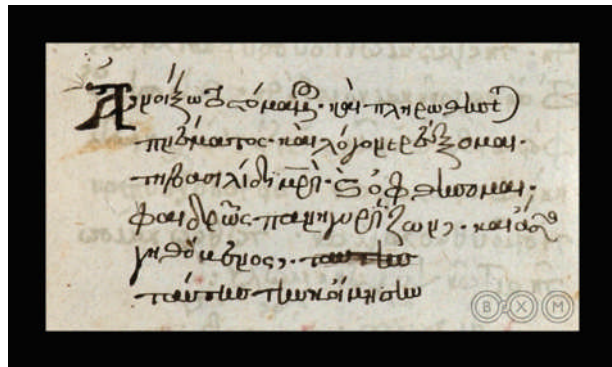 Ἀνοίξω τὸ στόμα μου· καὶ πληρωθήσετ
πνεύματος· καὶ λόγον ἐρεύξομαι·
τῇ βασιλίδι μρὶ· καὶ ὀφθήσομαι·
φαιδρῶς πανηγυρίζων· καὶ ἄσω
γηθόμενος,
ταύτης τὴν κοίμησιν
B X M